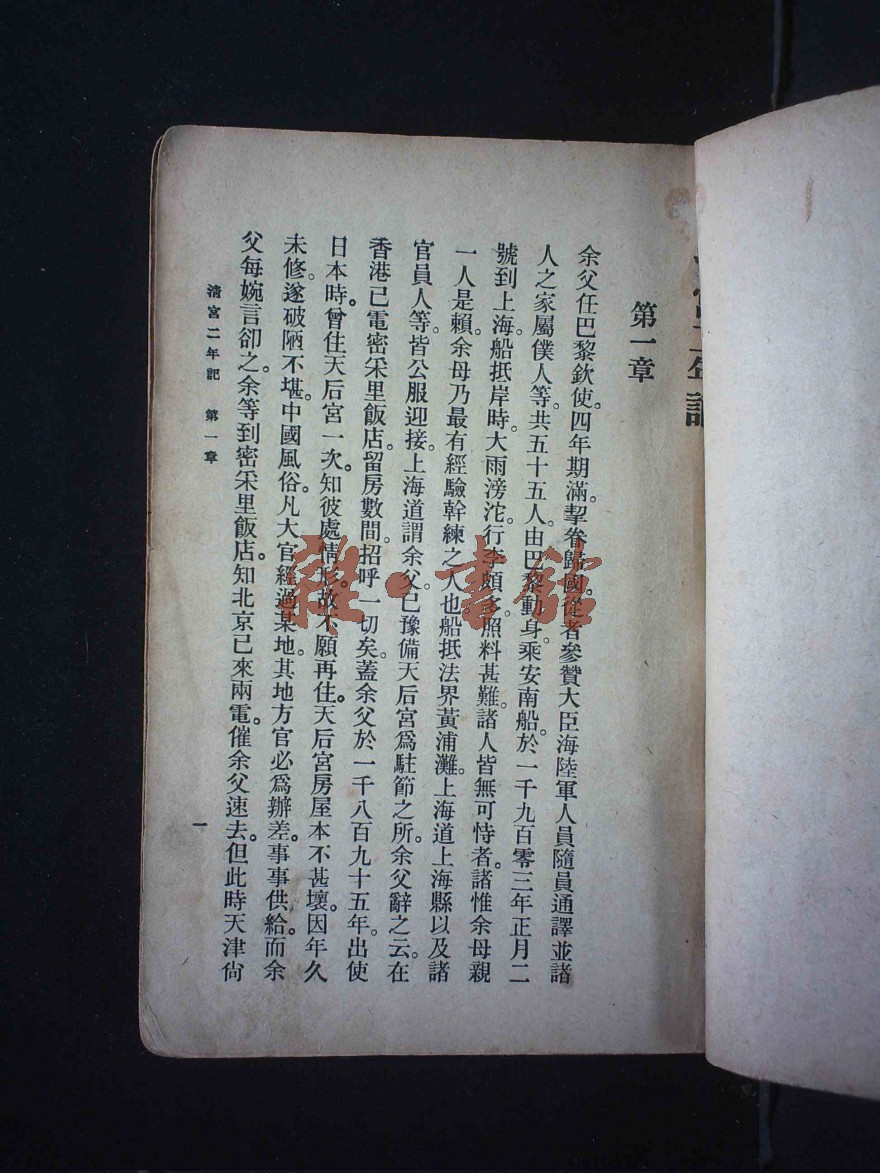 第一章
余父任巴黎欽使。四年期滿。挈眷歸國。從者參贊大臣海陸軍人員隨員通譯並諸
人之家屬僕人等。共五十五人。由巴黎動身。乘安南船。於一千九百零三年正月二
號到上海。船抵岸時。大雨滂沱。行李頗多。照料甚難。諸人皆無可恃者。諸惟余母親
一人是賴。余母乃最有經驗幹練之人也。船抵法界黃浦灘。上海道上海縣以及諸
官員人等。皆公服迎接。上海道謂余父。已豫備天后宮爲駐節之所。余父辭之云。在
香港已電密采里飯店。留房數間。招呼一切矣。蓋余父於一千八百九十五年。出使
日本時。曾住天后宮一次。知彼處情形。故不願再住。天后宮房屋本不甚壞。因年久
未修。遂破陋不堪。中國風俗。凡大官經過某地。其地方官必爲辦差。事事供給。而余
父每婉言卻之。余等到密采里飯店。知北京已來兩電。催余父速去。但此時天津尙
清宮二年記 第一章
一
雜·書館